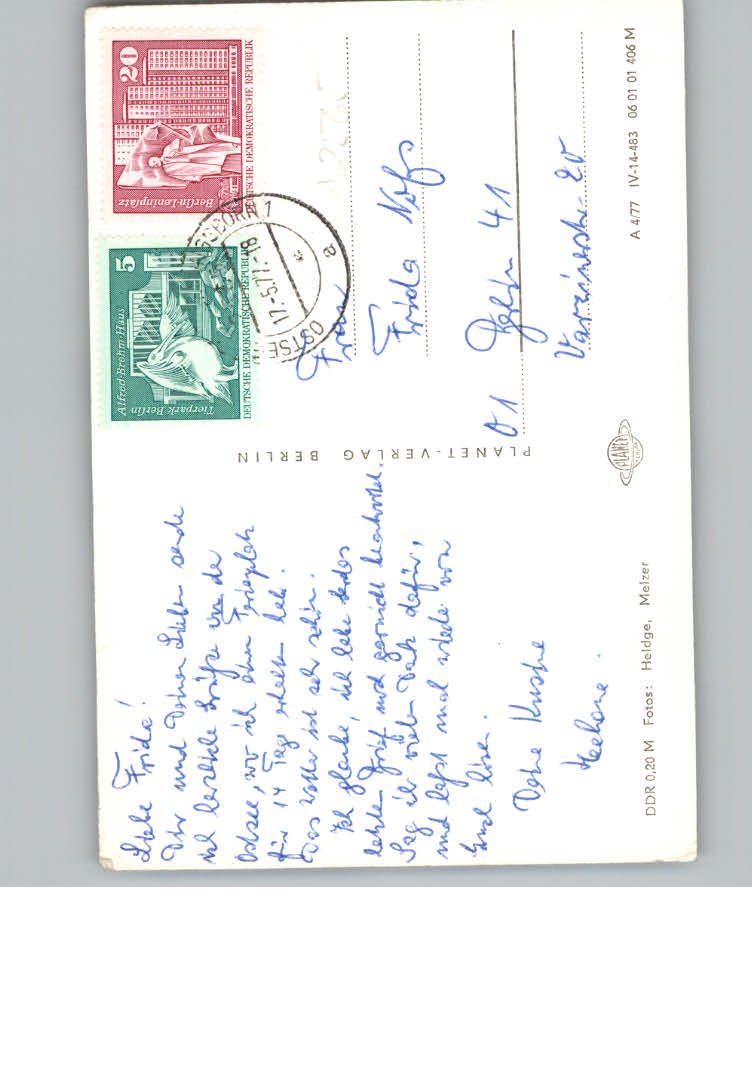 Liebe Frida!
Dir und Deinen Lieben sende
ich herzliche Grüße von der
Ostsee, wo ich einen Ferienplatz
für 14 Tage erhalten habe.
Das Wetter ist sehr schön.
Ich glaube, ich habe
letzten Brief noch garnicht beantwortet.
Sag ihr vielen Dank dafür,
und laßt mal wieder von
Euch hören.
Deine
PLANET-VERLAG BERLIN
20
Berlin-Leninplatz
DEUTSCHE DEMOKRATISCHE REPUBLIK
5
Alfred-Brehm-Haus
Tierpark Berlin
DEUTSCHE DEMOKRATISCHE REPUBLIK
OSTSE
17.-5.77.-18
a
Frau
Frida
Berlin 41
Varzinerstr. 20
PLANET
DDR 0,20 M Fotos: Heldge, Melzer
A 4/77 IV-14-483 06 01 01 406 M